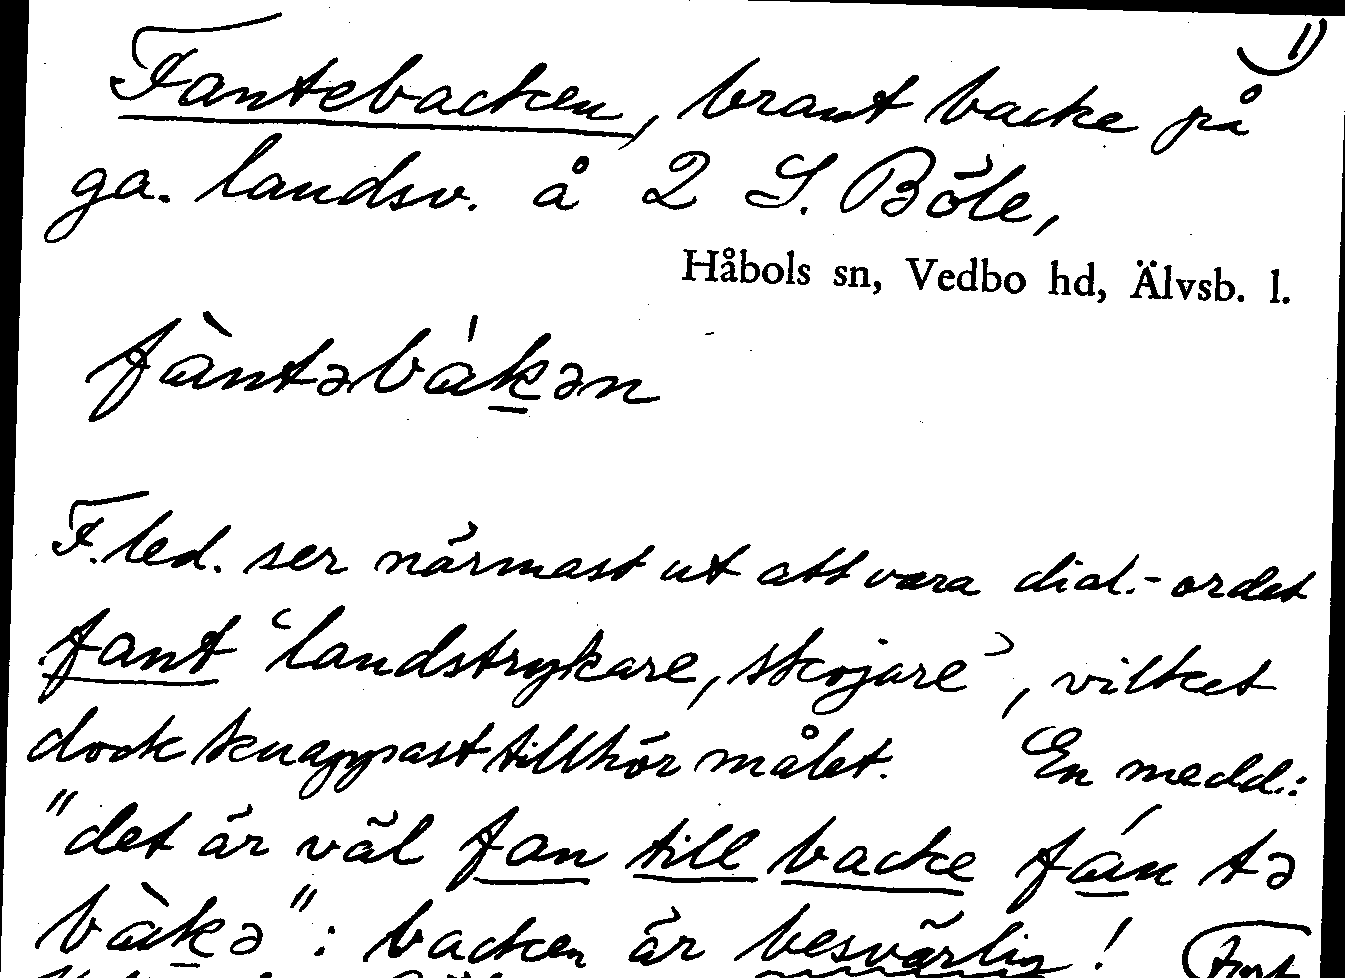 1)
Fantebacken, brant backe på
ga. landsv. å 2 S. Böle,
Håbols sn, Vedbo hd, Älvsb. l.
fàntəbákən
F.led. ser närmast ut att vara dial.-ordet
fant ‘landstrykare, skojare’, vilket
dock knappast tillhör målet. En medd.:
"det är väl fan till backe fán tə
bàkə": backen är besvärlig!